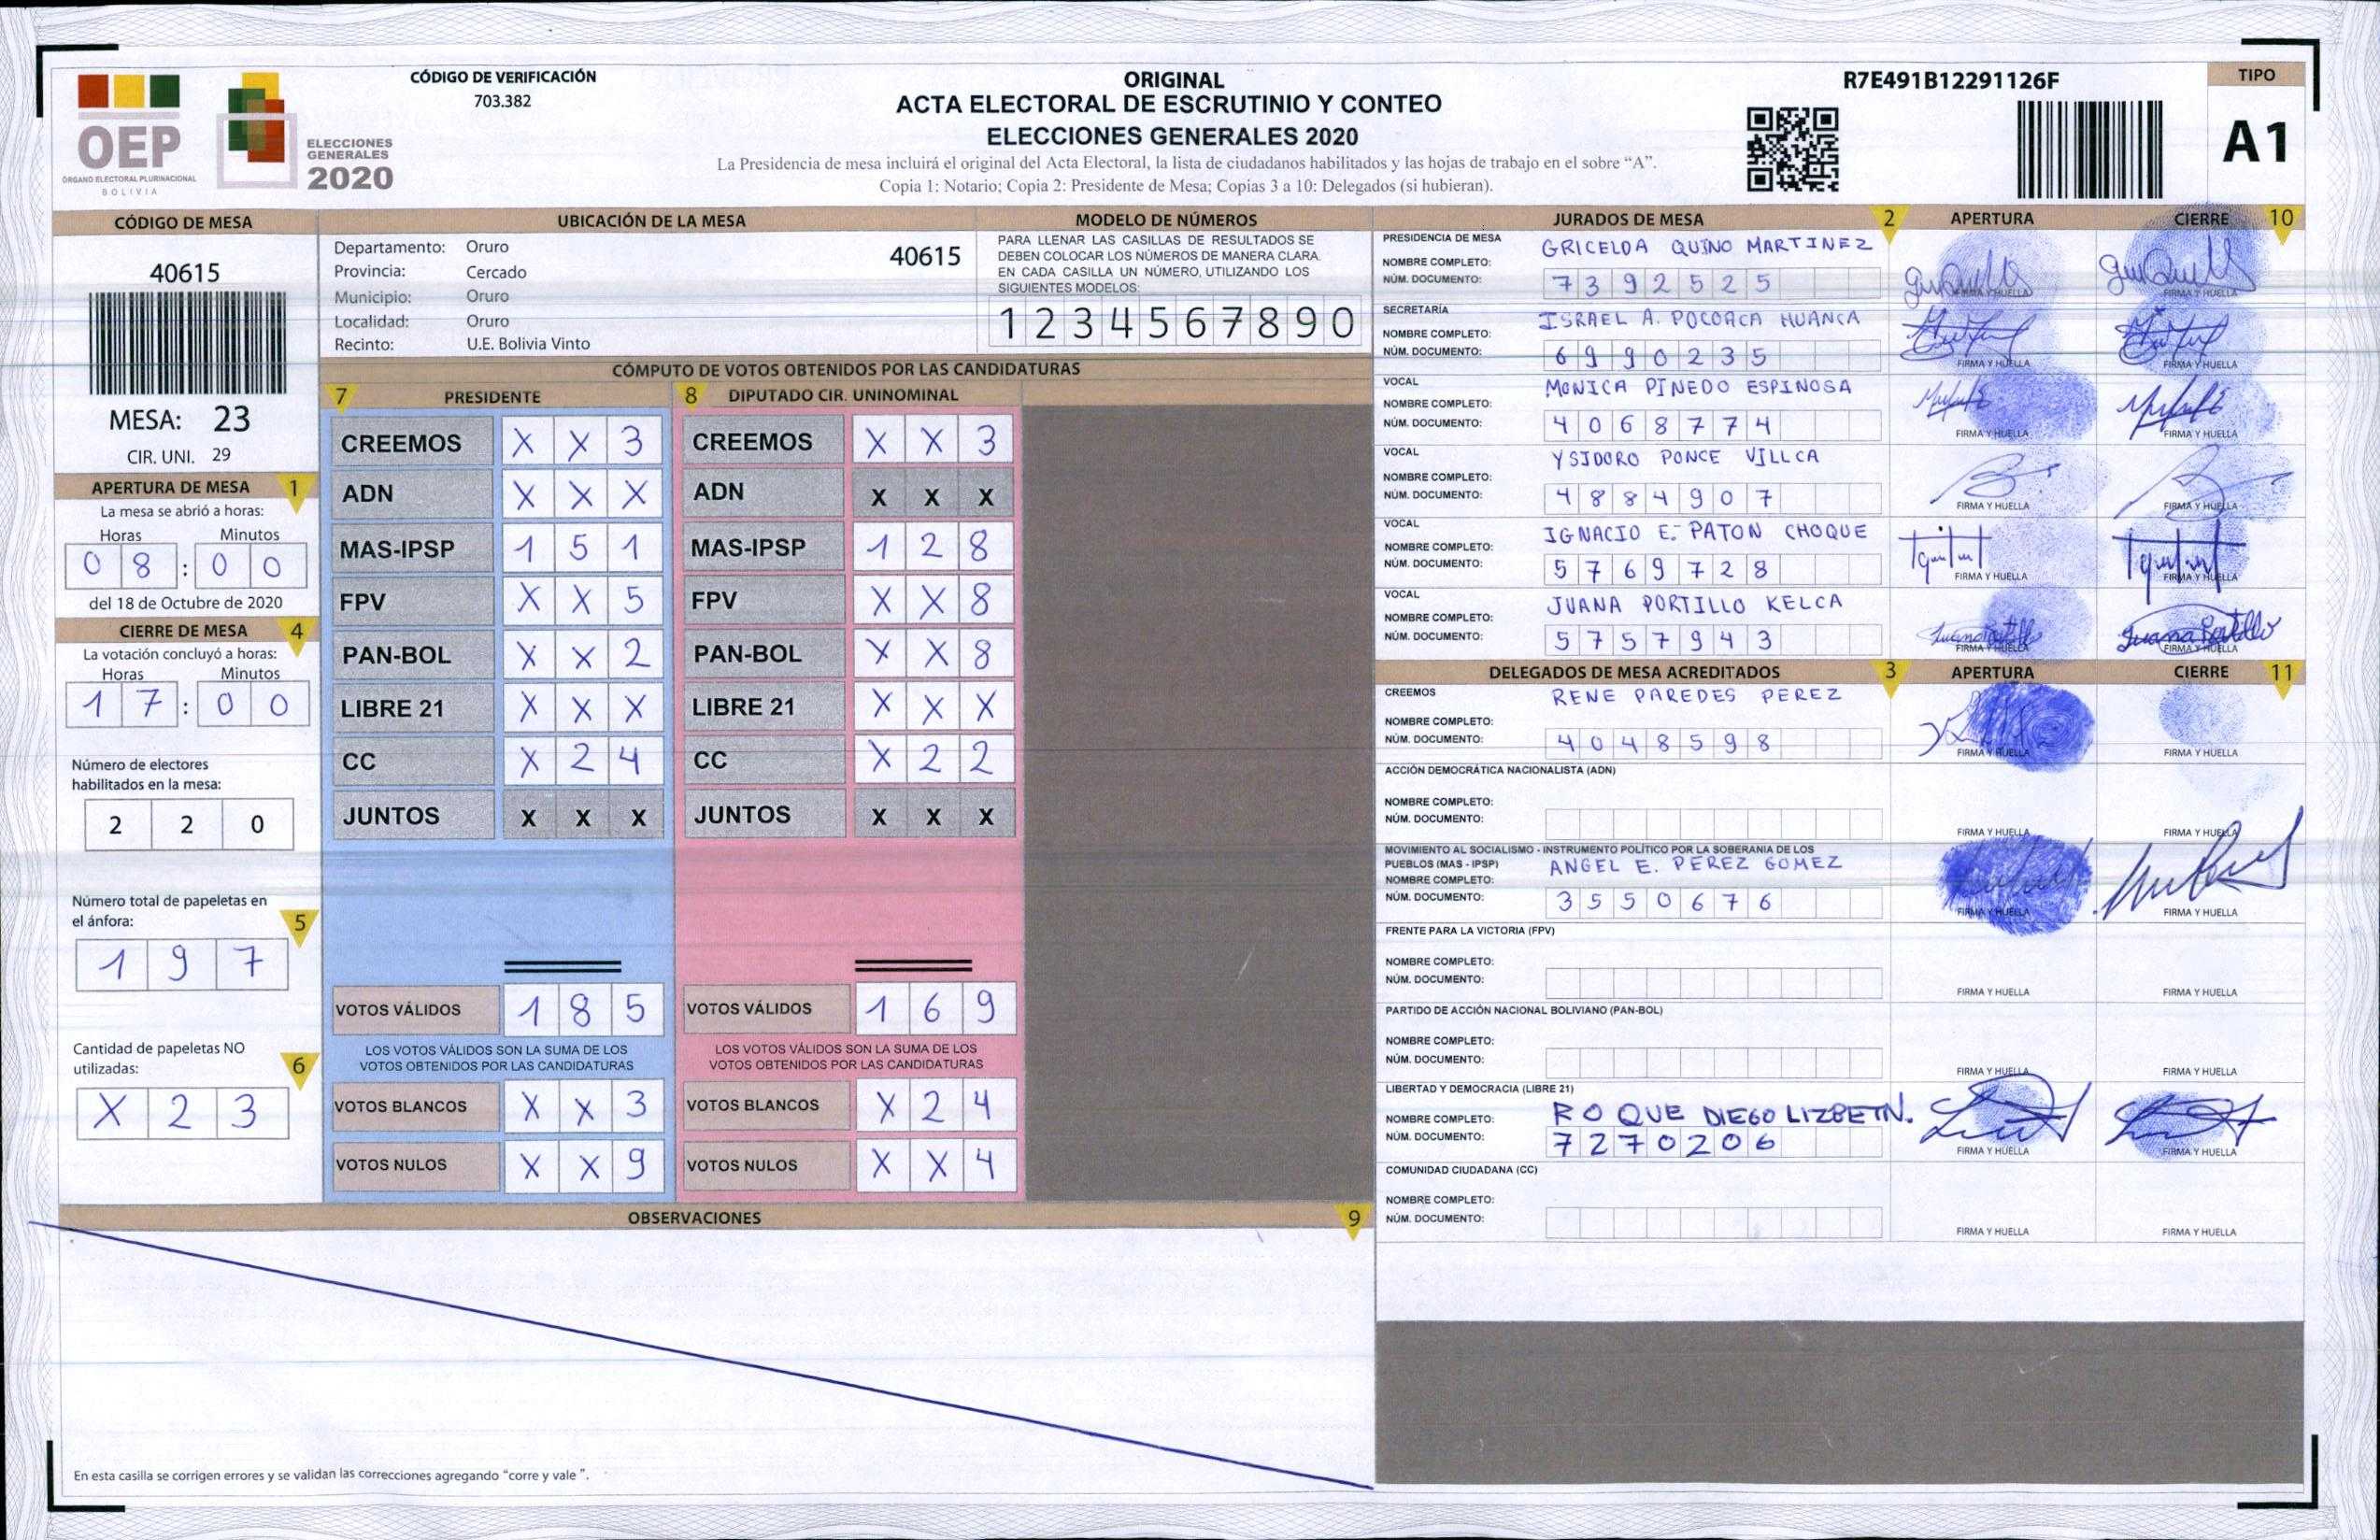 OEP
ÓRGANO ELECTORAL PLURINACIONAL
BOLIVIA
ELECCIONES
GENERALES
2020
CÓDIGO DE VERIFICACIÓN
703.382
ORIGINAL
ACTA ELECTORAL DE ESCRUTINIO Y CONTEO
ELECCIONES GENERALES 2020
La Presidencia de mesa incluirá el original del Acta Electoral, la lista de ciudadanos habilitados y las hojas de trabajo en el sobre “A”.
Copia 1: Notario; Copia 2: Presidente de Mesa; Copias 3 a 10: Delegados (si hubieran).
R7E491B12291126F
TIPO
A1
CÓDIGO DE MESA
40615
MESA: 23
CIR. UNI. 29
APERTURA DE MESA 1
La mesa se abrió a horas:
Horas Minutos
0 8 : 0 0
del 18 de Octubre de 2020
CIERRE DE MESA 4
La votación concluyó a horas:
Horas Minutos
1 7 : 0 0
Número de electores
habilitados en la mesa:
2 2 0
Número total de papeletas en
el ánfora: 5
1 9 7
Cantidad de papeletas NO
utilizadas: 6
X 2 3
UBICACIÓN DE LA MESA
Departamento: Oruro 40615
Provincia: Cercado
Municipio: Oruro
Localidad: Oruro
Recinto: U.E. Bolivia Vinto
MODELO DE NÚMEROS
PARA LLENAR LAS CASILLAS DE RESULTADOS SE
DEBEN COLOCAR LOS NÚMEROS DE MANERA CLARA.
EN CADA CASILLA UN NÚMERO, UTILIZANDO LOS
SIGUIENTES MODELOS:
1 2 3 4 5 6 7 8 9 0
CÓMPUTO DE VOTOS OBTENIDOS POR LAS CANDIDATURAS
7 PRESIDENTE 8 DIPUTADO CIR. UNINOMINAL
CREEMOS X X 3 CREEMOS X X 3
ADN X X X ADN X X X
MAS-IPSP 1 5 1 MAS-IPSP 1 2 8
FPV X X 5 FPV X X 8
PAN-BOL X X 2 PAN-BOL X X 8
LIBRE 21 X X X LIBRE 21 X X X
CC X 2 4 CC X 2 2
JUNTOS X X X JUNTOS X X X
VOTOS VÁLIDOS 1 8 5 VOTOS VÁLIDOS 1 6 9
LOS VOTOS VÁLIDOS SON LA SUMA DE LOS LOS VOTOS VÁLIDOS SON LA SUMA DE LOS
VOTOS OBTENIDOS POR LAS CANDIDATURAS VOTOS OBTENIDOS POR LAS CANDIDATURAS
VOTOS BLANCOS X X 3 VOTOS BLANCOS X 2 4
VOTOS NULOS X X 9 VOTOS NULOS X X 4
OBSERVACIONES 9
En esta casilla se corrigen errores y se validan las correcciones agregando “corre y vale ”.
JURADOS DE MESA 2 APERTURA CIERRE 10
PRESIDENCIA DE MESA
NOMBRE COMPLETO: GRICELDA QUINO MARTINEZ
NÚM. DOCUMENTO: 7 3 9 2 5 2 5
FIRMA Y HUELLA FIRMA Y HUELLA
SECRETARÍA
NOMBRE COMPLETO: ISRAEL A. POCOACA HUANCA
NÚM. DOCUMENTO: 6 9 9 0 2 3 5
FIRMA Y HUELLA FIRMA Y HUELLA
VOCAL
NOMBRE COMPLETO: MONICA PINEDO ESPINOSA
NÚM. DOCUMENTO: 4 0 6 8 7 7 4
FIRMA Y HUELLA FIRMA Y HUELLA
VOCAL
NOMBRE COMPLETO: YSIDORO PONCE VILLCA
NÚM. DOCUMENTO: 4 8 8 4 9 0 7
FIRMA Y HUELLA FIRMA Y HUELLA
VOCAL
NOMBRE COMPLETO: IGNACIO E. PATON CHOQUE
NÚM. DOCUMENTO: 5 7 6 9 7 2 8
FIRMA Y HUELLA FIRMA Y HUELLA
VOCAL
NOMBRE COMPLETO: JUANA PORTILLO KELCA
NÚM. DOCUMENTO: 5 7 5 7 9 4 3
Juana Portillo
FIRMA Y HUELLA FIRMA Y HUELLA
DELEGADOS DE MESA ACREDITADOS 3 APERTURA CIERRE 11
CREEMOS
NOMBRE COMPLETO: RENE PAREDES PEREZ
NÚM. DOCUMENTO: 4 0 4 8 5 9 8
FIRMA Y HUELLA FIRMA Y HUELLA
ACCIÓN DEMOCRÁTICA NACIONALISTA (ADN)
NOMBRE COMPLETO:
NÚM. DOCUMENTO:
FIRMA Y HUELLA FIRMA Y HUELLA
MOVIMIENTO AL SOCIALISMO - INSTRUMENTO POLÍTICO POR LA SOBERANIA DE LOS
PUEBLOS (MAS - IPSP)
NOMBRE COMPLETO: ANGEL E. PEREZ GOMEZ
NÚM. DOCUMENTO: 3 5 5 0 6 7 6
FIRMA Y HUELLA FIRMA Y HUELLA
FRENTE PARA LA VICTORIA (FPV)
NOMBRE COMPLETO:
NÚM. DOCUMENTO:
FIRMA Y HUELLA FIRMA Y HUELLA
PARTIDO DE ACCIÓN NACIONAL BOLIVIANO (PAN-BOL)
NOMBRE COMPLETO:
NÚM. DOCUMENTO:
FIRMA Y HUELLA FIRMA Y HUELLA
LIBERTAD Y DEMOCRACIA (LIBRE 21)
NOMBRE COMPLETO: ROQUE DIEGO LIZBETN.
NÚM. DOCUMENTO: 7 2 7 0 2 0 6
FIRMA Y HUELLA FIRMA Y HUELLA
COMUNIDAD CIUDADANA (CC)
NOMBRE COMPLETO:
NÚM. DOCUMENTO:
FIRMA Y HUELLA FIRMA Y HUELLA